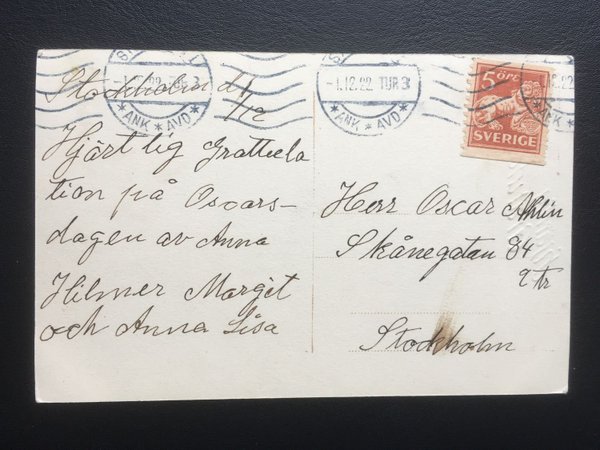 -1.12.22. TUR 3
* ANK * AVD *
-1.12.22. TUR 3
* ANK * AVD *
5 ÖRE
SVERIGE
Stockholm d 1/12
Hjärtlig Grattula
tion på Oscars-
dagen av Anna
Hilmer Margit
och Anna Lisa
Herr Oscar Ahlin
Skånegatan 84
2 tr
Stockholm